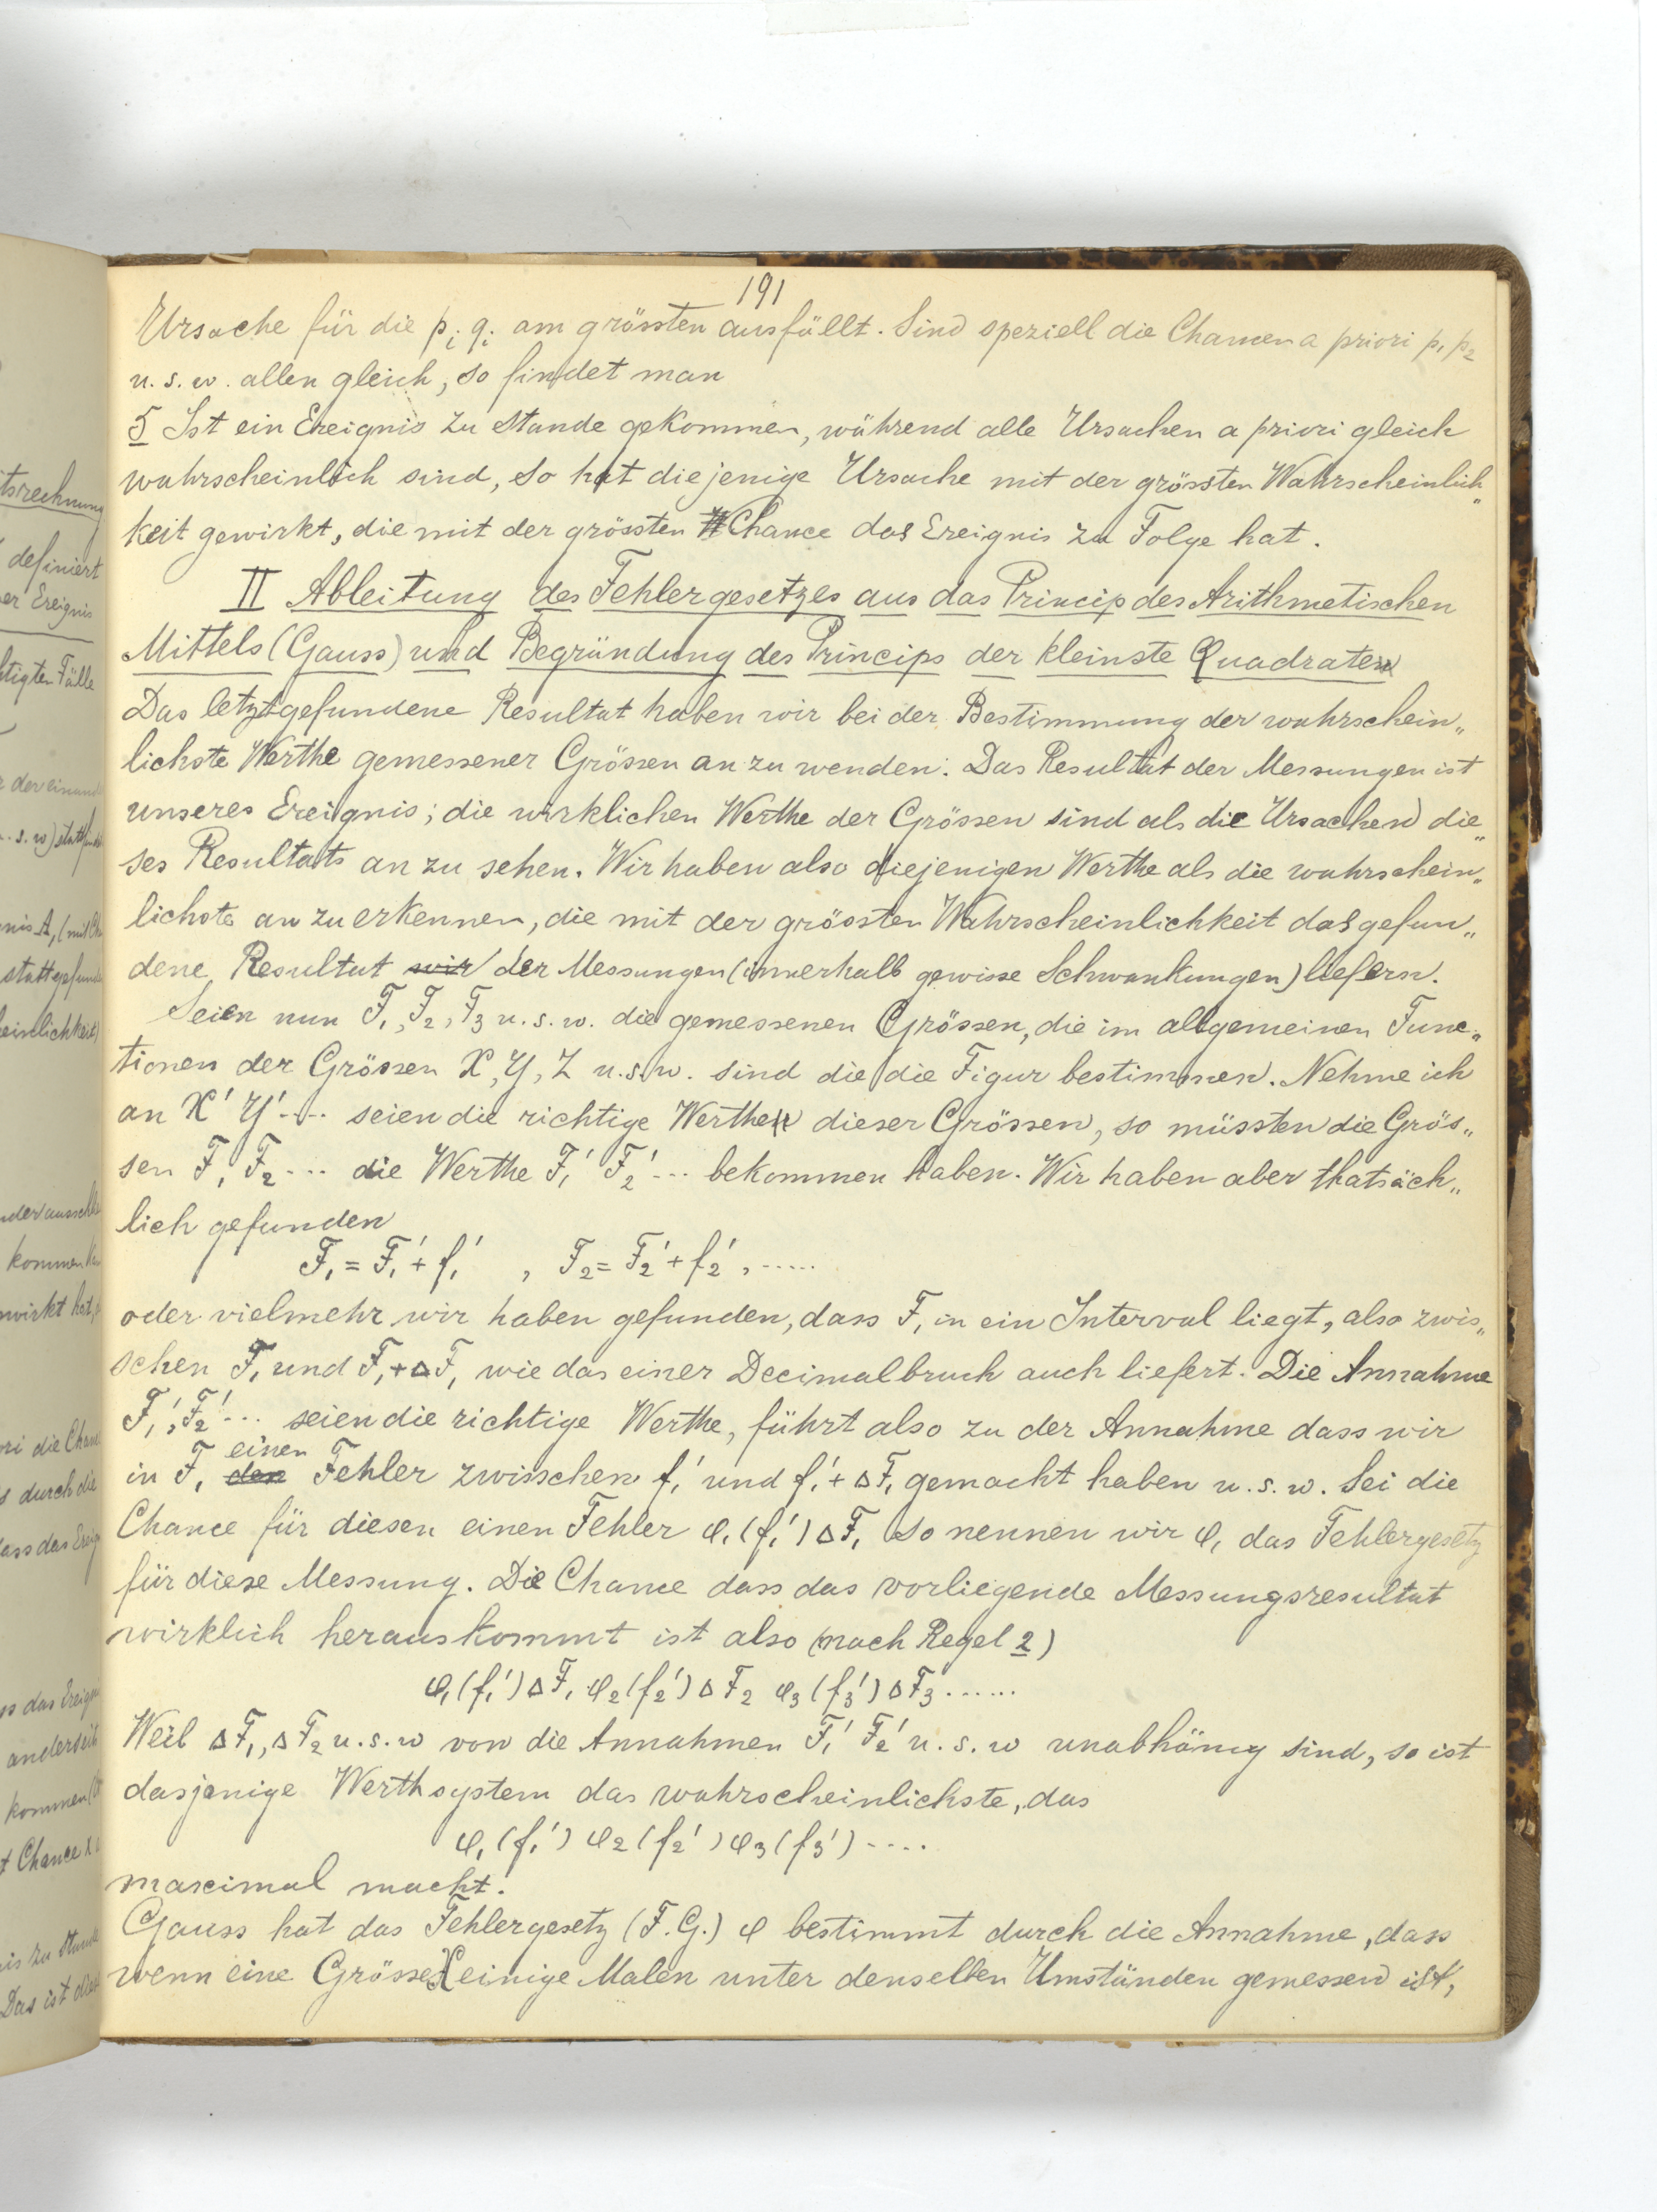 191
Ursache für die p_i q_i am grössten ausfällt. Sind speziell die Chancen a priori p_1 p_2
u. s. w. allen gleich, so findet man
5 Ist ein Ereignis zu Stande gekommen, während alle Ursachen a priori gleich
wahrscheinlich sind, so hat diejenige Ursache mit der grössten Wahrscheinlich„
keit gewirkt, die mit der grössten Chance das Ereignis zu Folge hat.
II Ableitung des Fehlergesetzes aus das Princip des Arithmetischen
Mittels (Gauss) und Begründung des Princips der kleinste Quadraten
Das letztgefundene Resultat haben wir bei der Bestimmung der wahrschein„
lichste Werthe gemessener Grössen an zu wenden. Das Resultat der Messungen ist
unseres Ereignis; die wirklichen Werthe der Grössen sind als die Ursachen die„
ses Resultats an zu sehen. Wir haben also diejenigen Werthe als die wahrschein„
lichste an zu erkennen, die mit der grössten Wahrscheinlichkeit das gefun„
dene Resultat wir der Messungen (innerhalb gewisse Schwankungen) liefern.
Seien nun F_1, F_2, F_3 u. s. w. die gemessenen Grössen, die im allgemeinen Func„
tionen der Grössen X, Y, Z u. s. w. sind die die Figur bestimmen. Nehme ich
an X' Y' .... seien die richtige Werthe dieser Grössen, so müssten die Grös„
sen F_1 F_2 ... die Werthe F_1' F_2' ... bekommen haben. Wir haben aber thatsäch„
lich gefunden
F_1 = F_1' + f_1' , F_2 = F_2' + f_2' , .....
oder vielmehr wir haben gefunden, dass F_1 in ein Interval liegt, also zwis„
schen F_1 und F_1 + ΔF_1 wie das einer Decimalbruch auch liefert. Die Annahme
F_1', F_2' ... seien die richtige Werthe, führt also zu der Annahme dass wir
in F_1 den einen Fehler zwisschen f_1' und f_1' + ΔF_1 gemacht haben u. s. w. Sei die
Chance für diesen einen Fehler φ_1 (f_1') ΔF_1 so nennen wir φ_1 das Fehlergesetz
für diese Messung. Die Chance dass das vorliegende Messungsresultat
wirklich herauskommt ist also (nach Regel 2)
φ_1 (f_1') ΔF_1 φ_2 (f_2') ΔF_2 φ_3 (f_3') ΔF_3 ......
Weil ΔF_1, ΔF_2 u. s. w von die Annahmen F_1' F_2' u. s. w unabhängig sind, so ist
dasjenige Werthsystem das wahrscheinlichste, das
φ_1 (f_1') φ_2 (f_2') φ_3 (f_3') ....
maximal macht.
Gauss hat das Fehlergesetz (F. G.) φ bestimmt durch die Annahme, dass
wenn eine Grösse X einige Malen unter denselben Umständen gemessen ist,